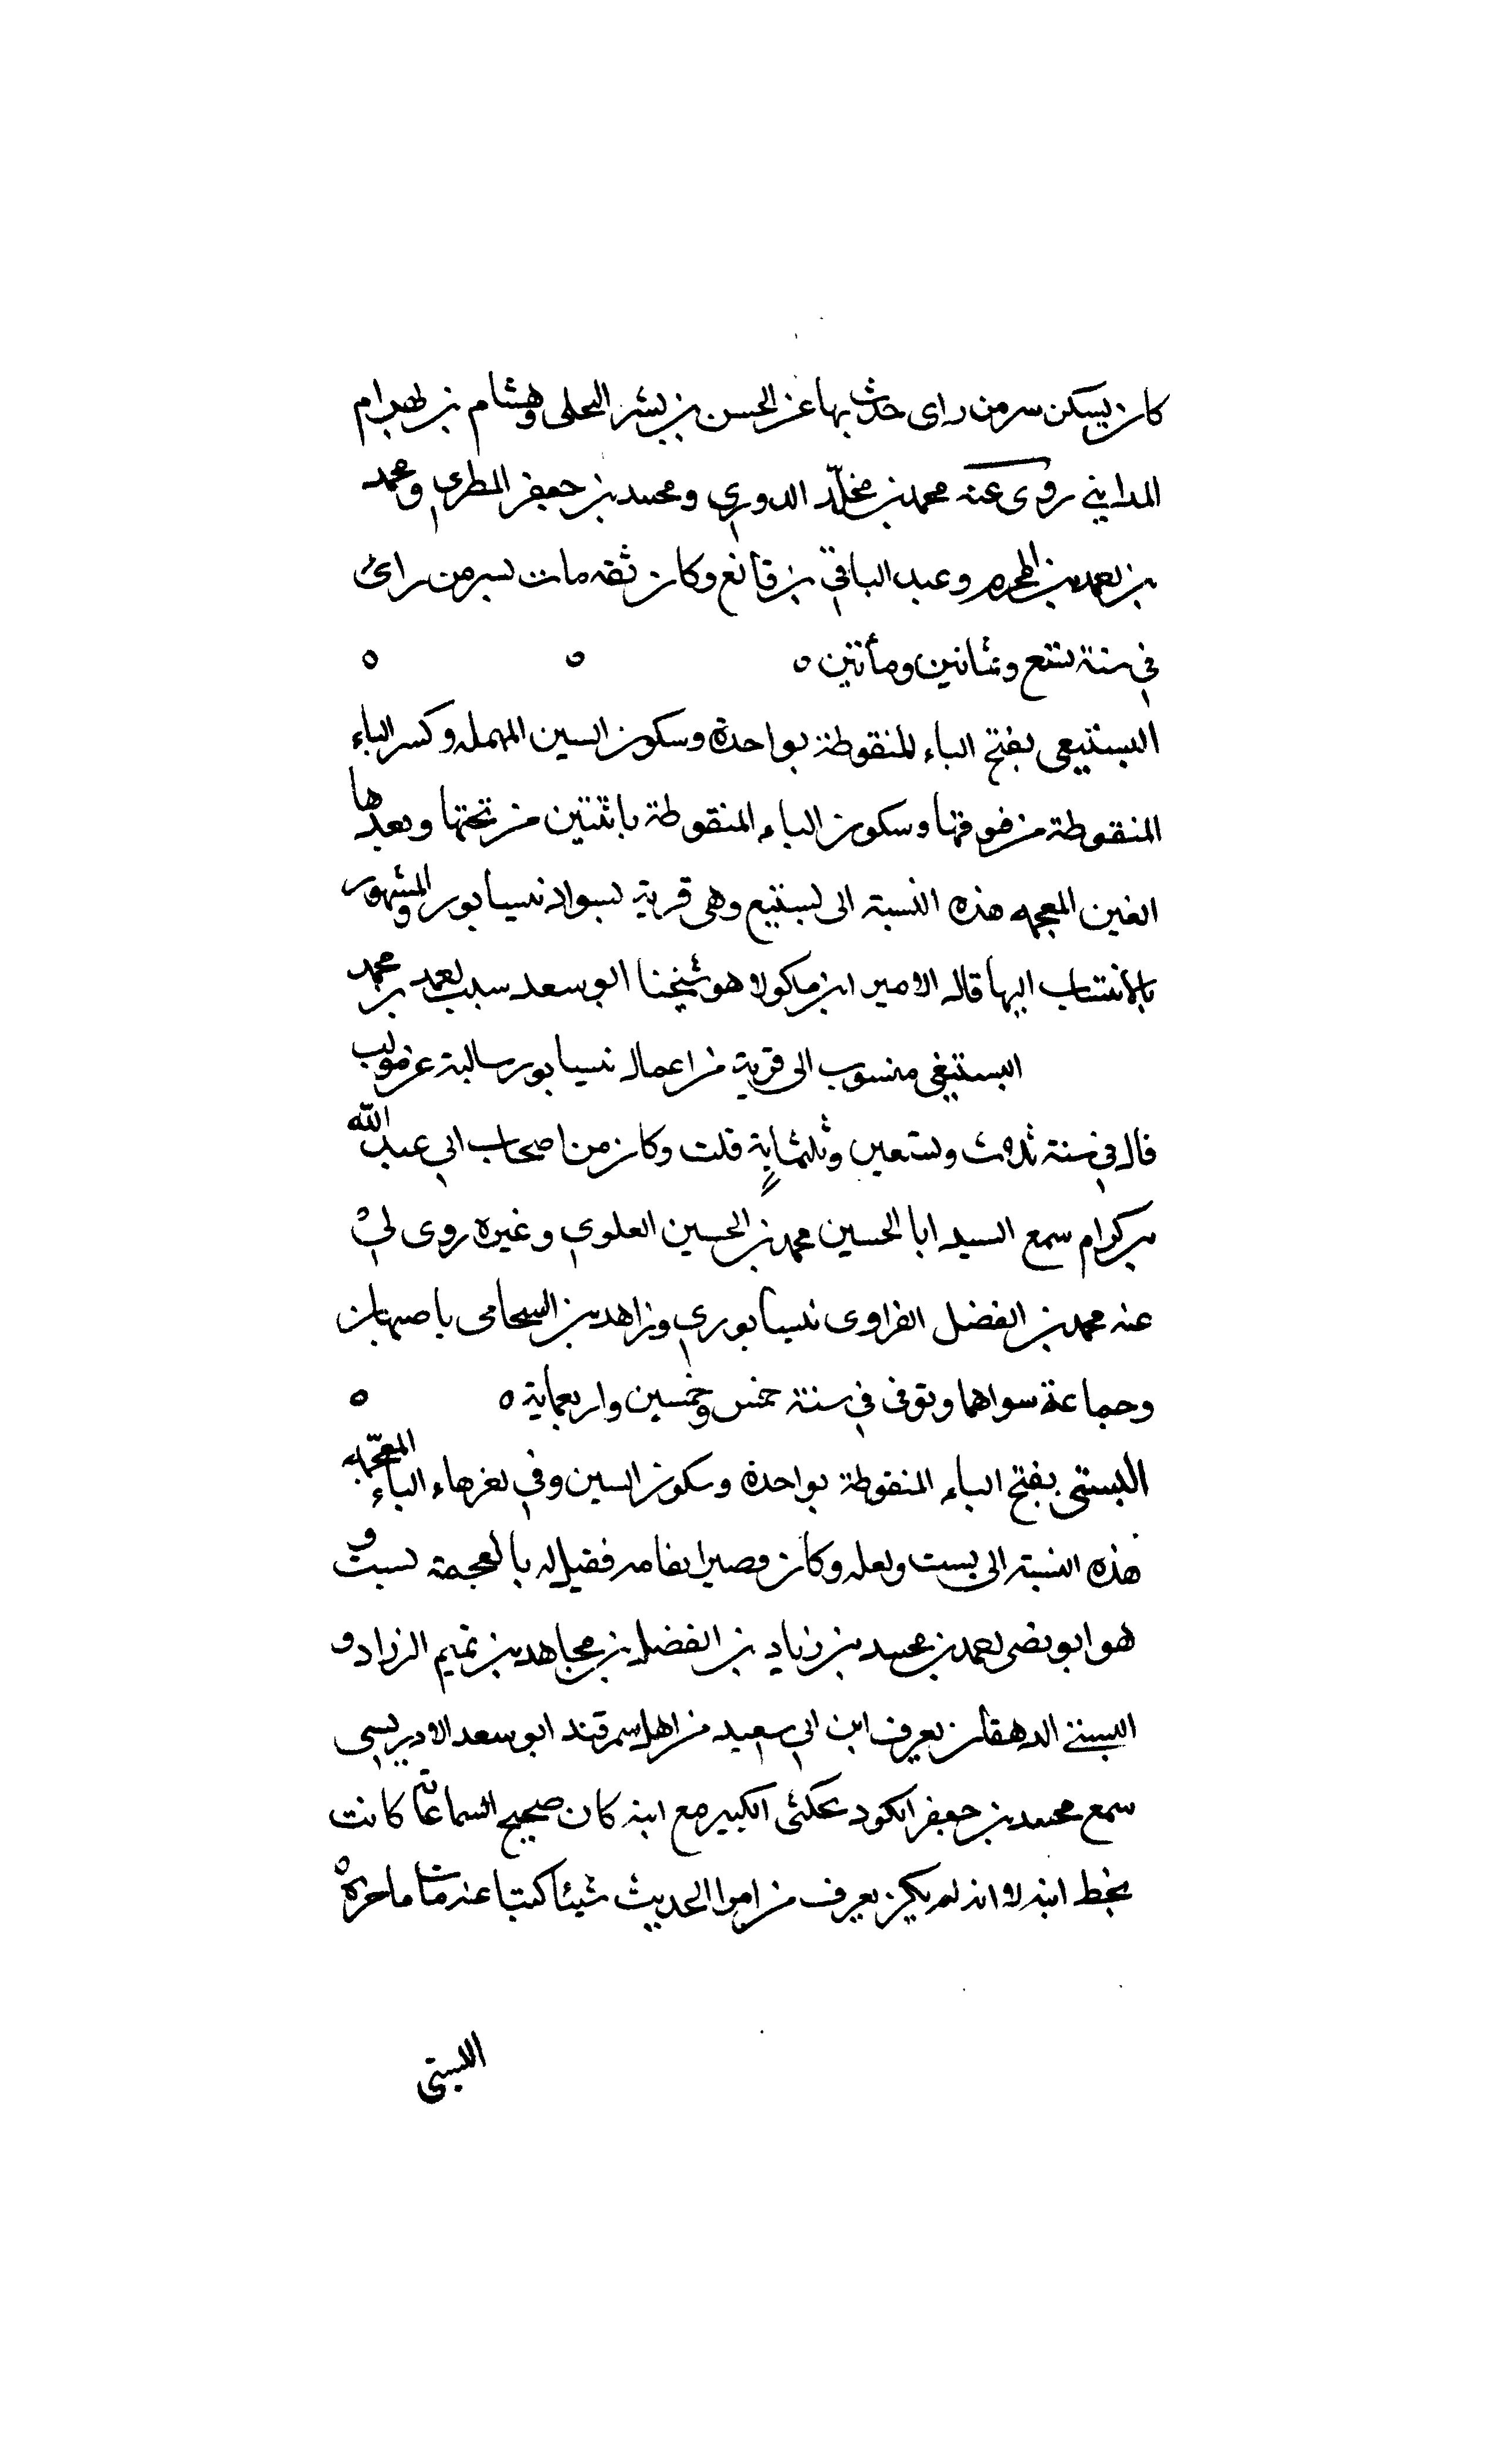 كان يسكن سر من راى حدث بها عن الحسن بن بشر البجلى وهشام بن بهرام
المدايني روى عنه محمد بن مخلد الدوري ومحمد بن جعفر المطري ومحمد
بن احمد بن المحرم وعبد الباقي بن قانع وكان ثقه مات بسر من راى
في سنة تسع وثمانين ومأتين ٥ ٥ ٥
البستيعى بفتح الباء المنقوطة بواحدة وسكون السين المهمله وكسر الباء
المنقوطة من فوقها وسكون الياء المنقوطة باثنتين من تحتها وبعدها
الغين المعجمه هذه النسبة الى بستيغ وهى قرية بسواد نيسابور والمشهور
بالانتساب اليها قال الامير ابن ماكولا هو شيخنا ابو سعد احمد بن محمد
البستيغى منسوب الى قرية من اعمال نيسابور سالته عن مولده
قال في سنة ثلاث وتسعين وثلثماية قلت وكان من اصحاب ابي عبد الله
بن كرام سمع السيد ابا الحسين محمد بن الحسين العلوي وغيره روى لي
عنه محمد بن الفضل الفراوى نيسابوري وزاهد بن الشحامى باصبهان
وجماعة سواهما وتوفى في سنة خمس وخمسين واربعماية ٥ ٥
البستى بفتح الباء المنقوطة بواحدة وسكون السين وفي اخرها الباء المعجمه
هذه النسبة الى بست ولعله وكان قصير القامه فقيل له بالعجمة بست و
هو ابو نصر احمد بن محمد بن زياد بن الفضل بن مجاهد بن تميم الزراد و
البستي الدهقان يعرف ابن ابي سعيد من اهل سمرقند ابو سعد الادريسى
سمع محمد بن جعفر الكبير مع ابنه كان صحيح السماعات كانت
بخط ابنه لا انه لم يكن يعرف من امر الحديث شيئا كتبنا عنه مات
البستى